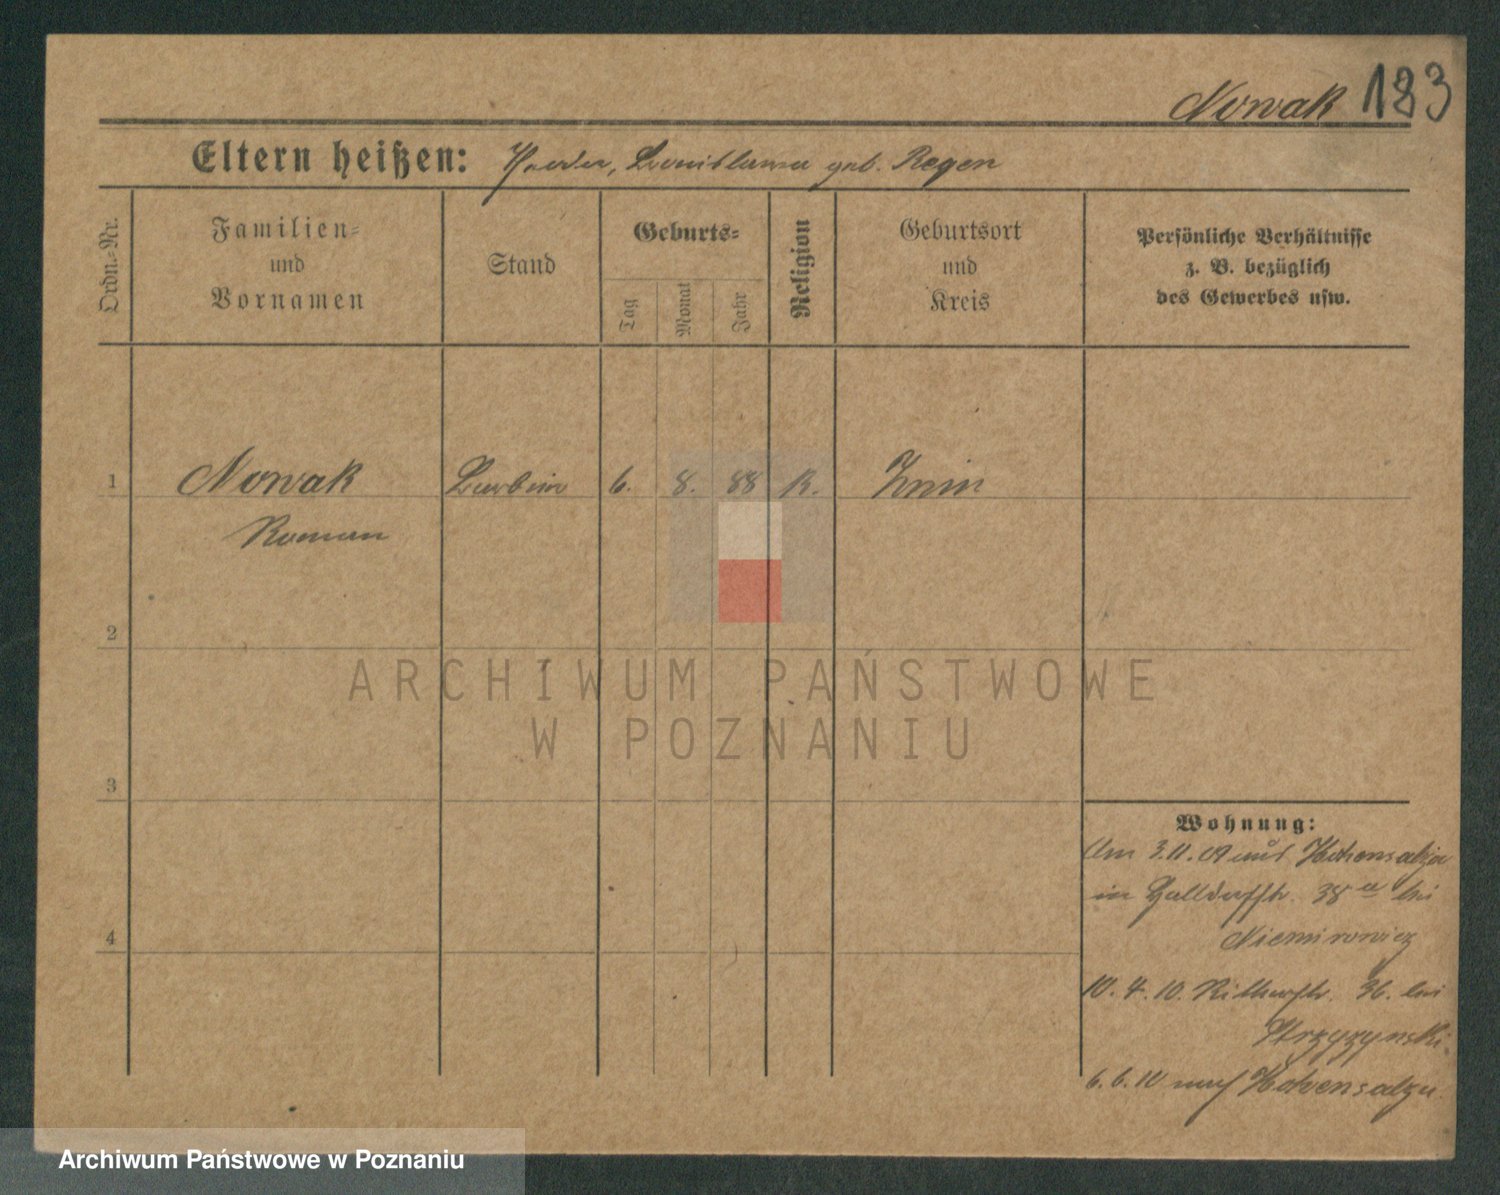 Nowak 183
Eltern heißen: geb. Regen
Ordn.-Nr.
Familien-
und
Vornamen
Stand
Geburts-
Tag
Monat
Jahr
Religion
Geburtsort
und
Kreis
Persönliche Verhältnisse
z. B. bezüglich
des Gewerbes usw.
1 Nowak 6. 8. 88 K. Znin
Roman
2
3
4
Wohnung:
Am 3.11.09 aus Hohensalza
in 38 a bei
Niemirowicz
10. 4. 10. Ritterstr. 36. bei
Strzyzynski.
6. 6. 10 nach Hohensalza.
ARCHIWUM PAŃSTWOWE
W POZNANIU
Archiwum Państwowe w Poznaniu